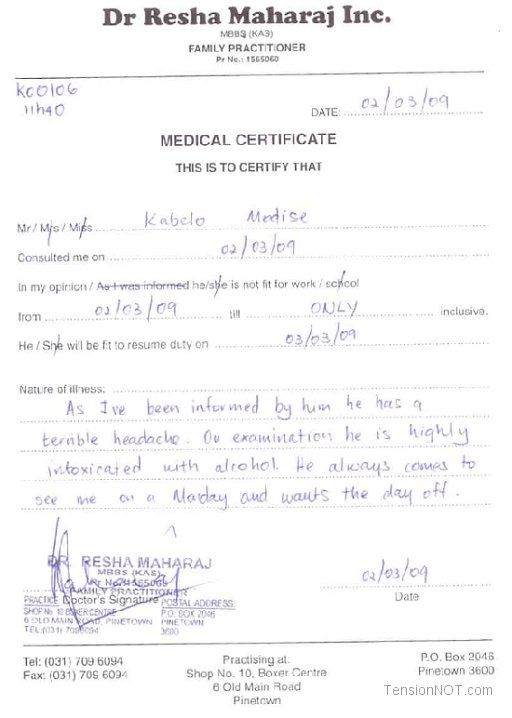 Dr Resha Maharaj Inc.
MBBS (KAS)
FAMILY PRACTITIONER
Pr No.: 1565060
K00106
11h40
DATE: 02/03/09
MEDICAL CERTIFICATE
THIS IS TO CERTIFY THAT
Mr / Mrs / Miss Kabelo Modise
Consulted me on 02/03/09
In my opinion / As I was informed he/she is not fit for work / school
from 02/03/09 till ONLY inclusive.
He / She will be fit to resume duty on 03/03/09
Nature of illness:
As I've been informed by him he has a
terrible headache. On examination he is highly
intoxicated with alcohol. He always comes to
see me on a Monday and wants the day off.
DR. RESHA MAHARAJ
MBBS (KAS)
FAMILY PRACTITIONER
PRACTICE Doctor's Signature POSTAL ADDRESS:
SHOP No 10 BOXER CENTRE P.O. BOX 2046
6 OLD MAIN ROAD, PINETOWN PINETOWN
TEL: (031) 7096094 3600
02/03/09
Date
Tel: (031) 709 6094
Fax: (031) 709 6094
Practising at:
Shop No. 10, Boxer Centre
6 Old Main Road
Pinetown
P.O. Box 2046
Pinetown 3600
TensionNOT.com